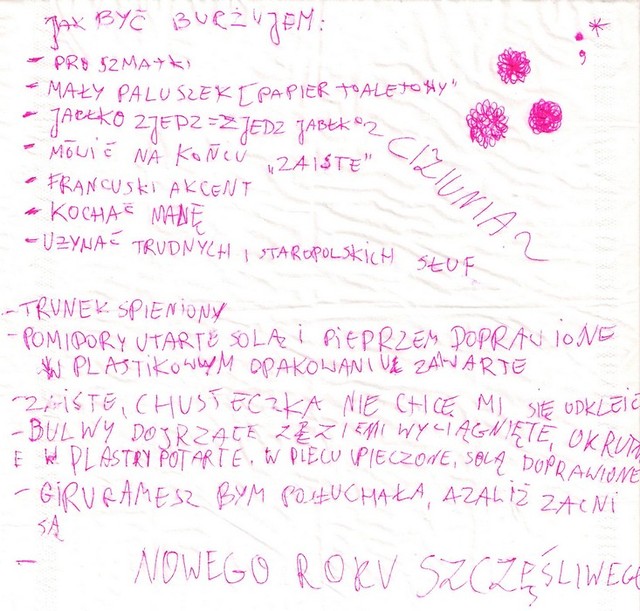 JAK BYĆ BURŻUJEM:
- PRO SZMATKI
- MAŁY PALUSZEK [PAPIER TOALETOWY"
- JABŁKO ZJEDZ = ZJEDZ JABŁKO
- MÓWIĆ NA KOŃCU „ZAISTE"
- FRANCUSKI AKCENT
- KOCHAĆ MANĘ
- UŻYWAĆ TRUDNYCH I STAROPOLSKICH SŁUF
CIZIUNIA
- TRUNEK SPIENIONY
- POMIDORY UTARTE SOLĄ I PIEPRZEM DOPRAWIONE
W PLASTIKOWYM OPAKOWANIU ZAWARTE
- ZAISTE, CHUSTECZKA NIE CHCE MI SIĘ ODKLEIĆ
- BULWY DOJRZAŁE Z ZIEMI WYCIĄGNIĘTE, OKRUTN
E W PLASTRY POTARTE. W PIECU UPIECZONE, SOLĄ DOPRAWIONE
- GIRUGAMESZ BYM POSŁUCHAŁA, AZALIŻ ZACNI
SĄ
- NOWEGO ROKU SZCZĘŚLIWEGO